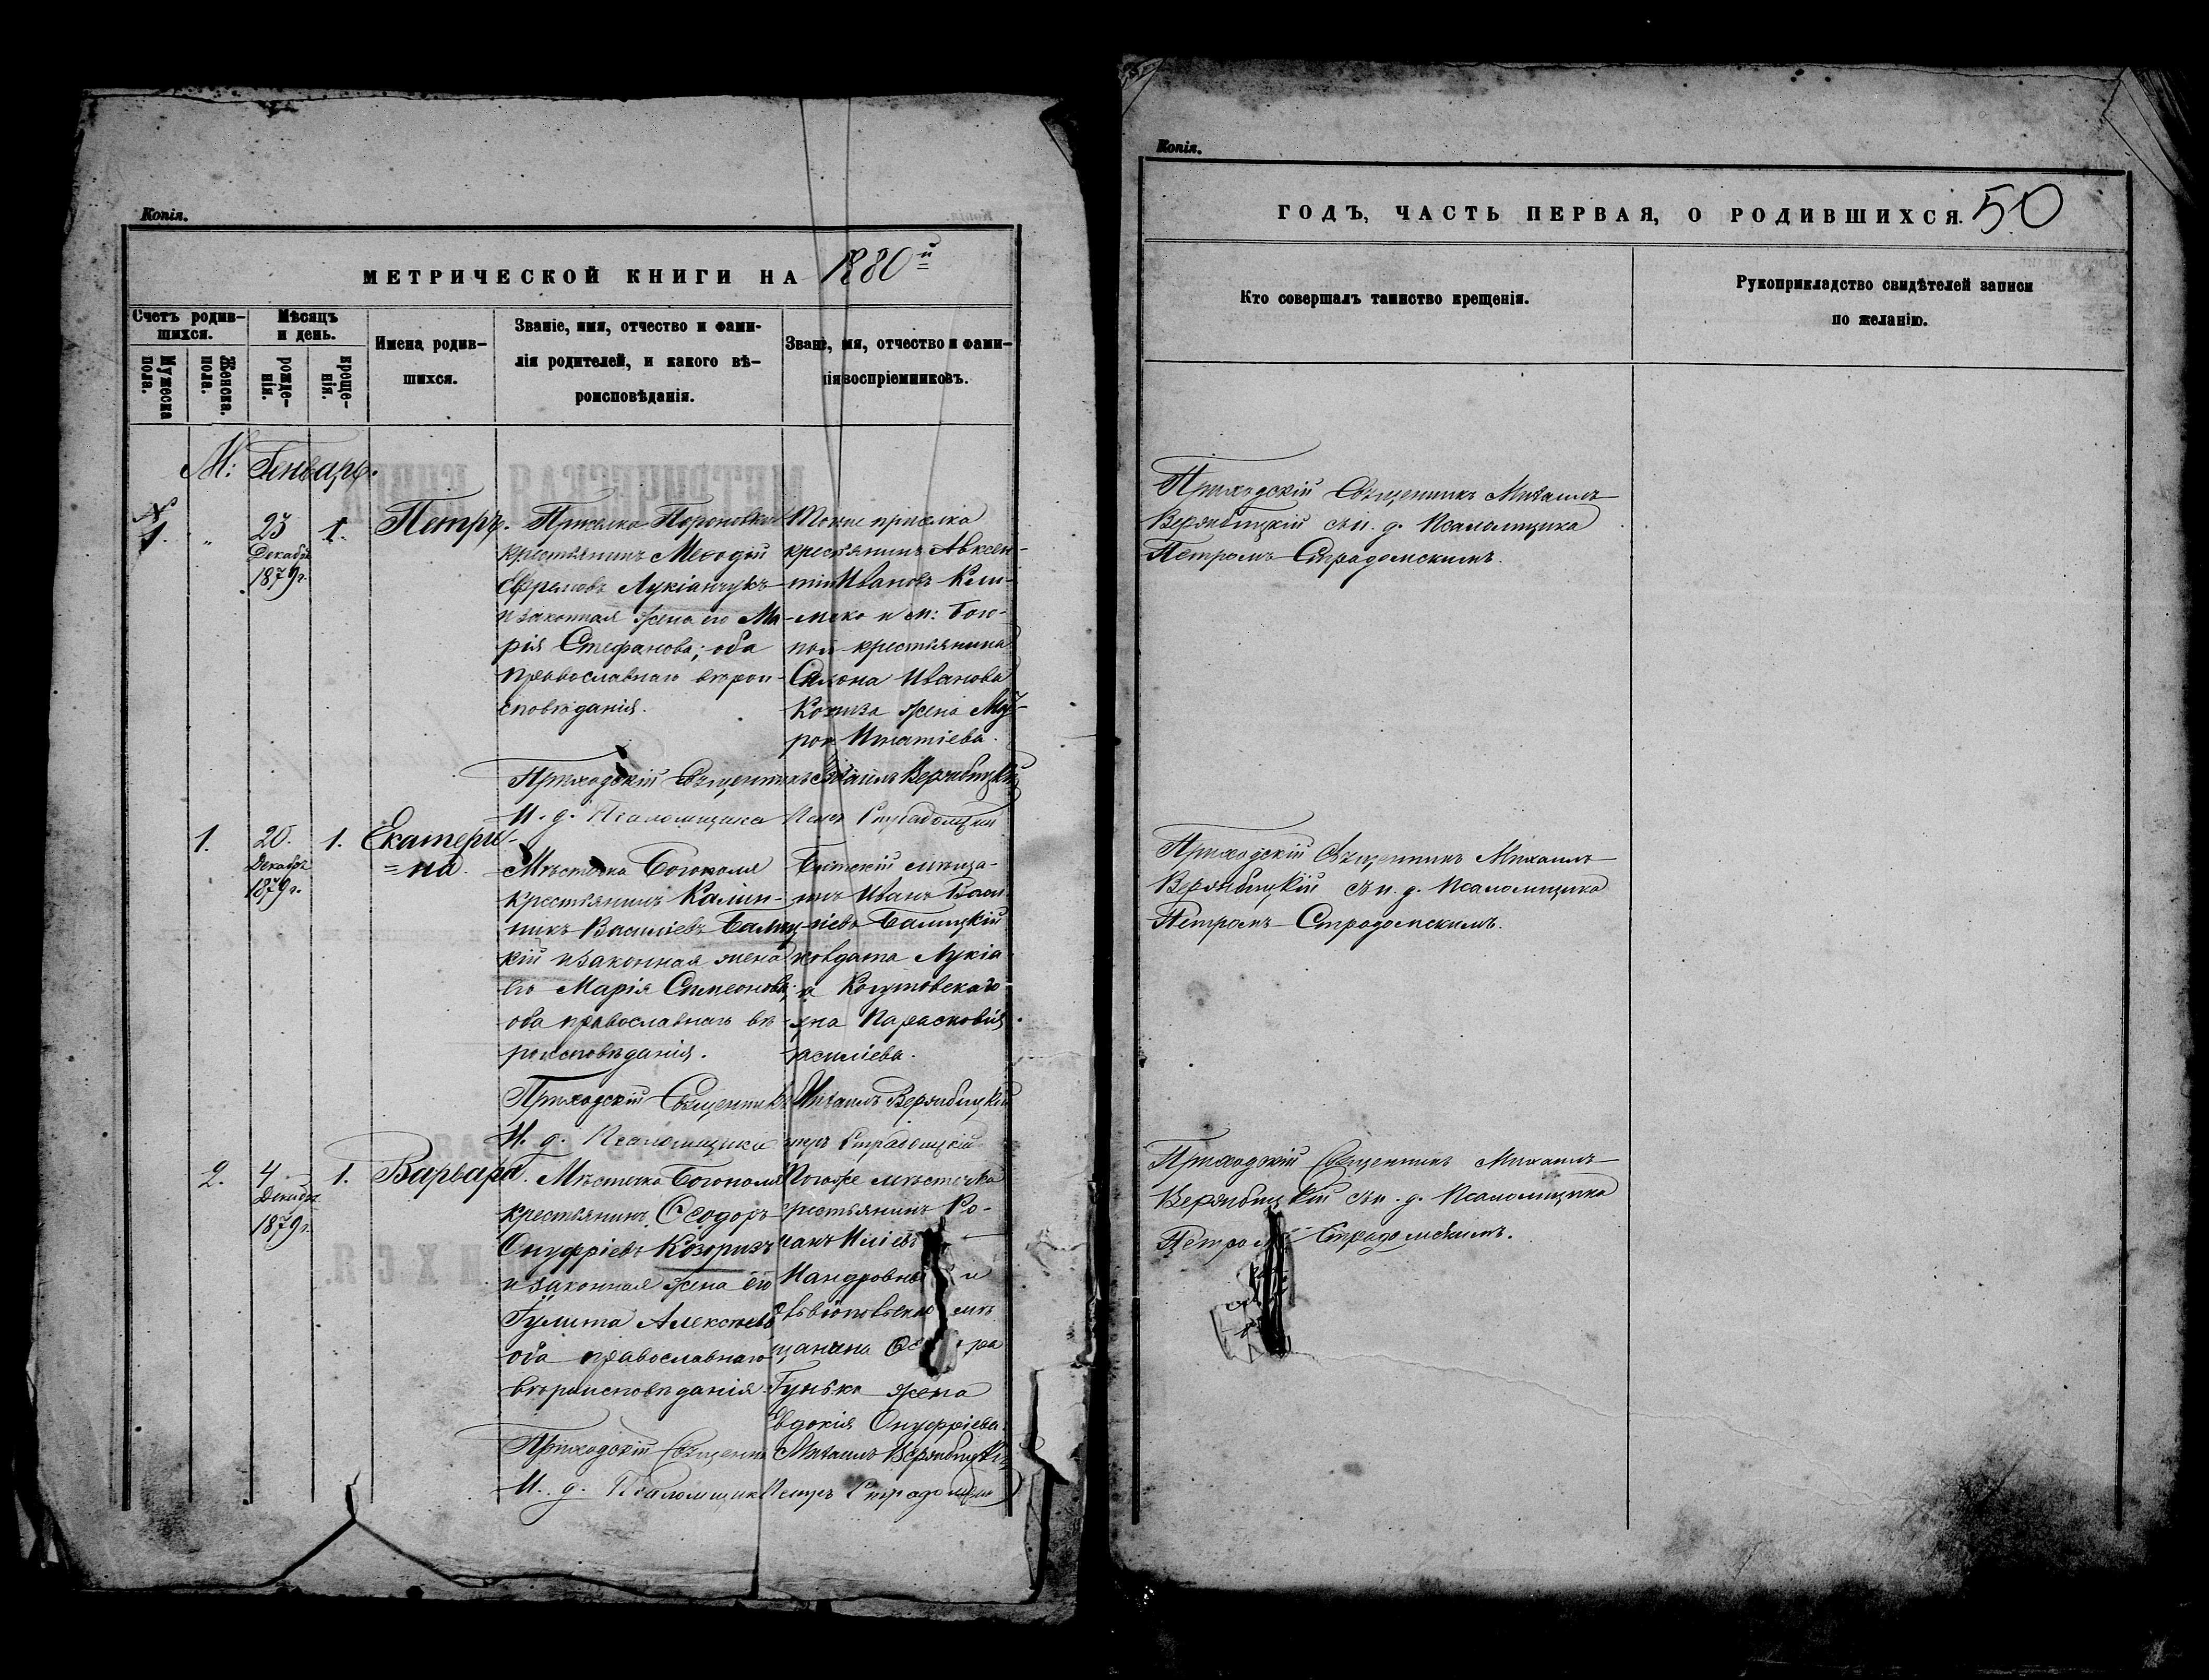 Копія.
МЕТРИЧЕСКОЙ КНИГИ НА 1880й
Счетъ родив-
шихся.
Мужеска
пола.
Женска.
пола.
Мѣсяцъ
и день.
рожде-
нія.
креще-
нія.
Имена родив-
шихся.
Званіе, имя, отчество и фами-
лія родителей, и какого вѣ-
роисповѣданія.
Звані, мя, отчество и фами-
лія воспріемниковъ.
М: Генварь.
1. " 23 Декабр 1879 г. 1. Петръ.
Приселка
крестьянинъ Меѳодій
Ефремовъ Лукіанчукъ
и законная жена его Ма-
рія Стефанова; обa
православнаго вѣрои-
споведанія.
приселка
крестьянинъ Авксен-
тій Ивановъ Кли-
менко и м: Бого-
поля крестьянина
Ивановa
жена Мау-
ра Игнатіева.
Приходскій Священникъ Михаилъ Вержбицкій
И. д. Псаломщика
1. 20. Декабр 1879 г. 1. Екатери-
=на.
Мѣстечка Богополя
крестьянинъ Калин-
никъ Василіевъ Балиц-
кій и законная жена
его Марія Симеонова,
оба православнаго вѣ-
роисповѣданія.
мѣща-
нъ Иванъ Васи-
ліевъ Балицкій
Лукіа
жена Парасковія
Василіева.
Приходскій Священникъ Михаилъ Вержбицкій
И. д. Псаломщика
2. 4 Декабр 1879 г. 1. Варвара.
Мѣстечка Богополя
крестьянинъ Ѳеодоръ
Онуфріевъ Козоризъ
и законная жена его
Гулита Алексѣева
оба православнаго
вѣроисповѣданія.
Тогоже мѣстечка
крестьянинъ Ро-
манъ Иліевъ
и
щанина
Гунько жена
Евдокія Онуфріева.
Приходскій Священникъ Михаилъ Вержбицкій
И. д. Псаломщика Петръ Страдомскій
Копія.
ГОДЪ, ЧАСТЬ ПЕРВАЯ, О РОДИВШИХСЯ. 50
Кто совершалъ таинство крещенія.
Рукоприкладство свидѣтелей записи
по желанію.
Приходскій Священникъ Михаилъ
Вержбицкій съ и. д. Псаломщика
Петромъ Страдомскимъ.
Приходскій Священникъ Михаилъ
Вержбицкій съ и. д. Псаломщика
Петромъ Страдомскимъ.
Приходскій Священникъ Михаилъ
Вержбицкій съ и. д. Псаломщика
Петромъ Страдомскимъ.